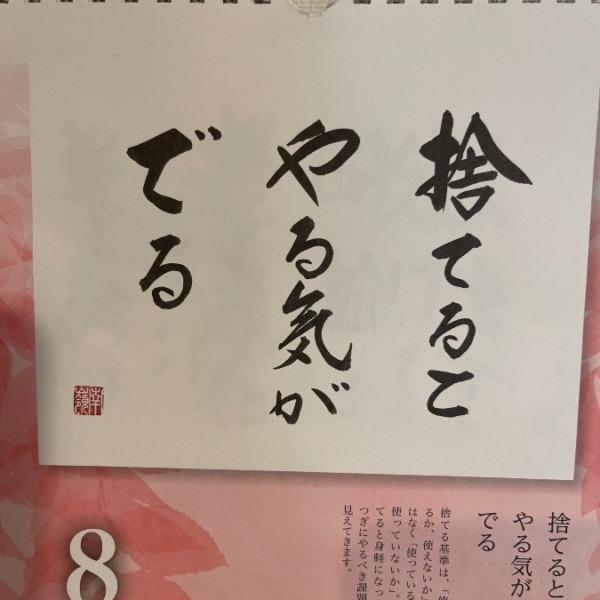 捨てると
やる気が
でる
捨てると
やる気が
でる
捨てる基準は、「使
るか、使えないか」
はなく「使っている
使っていないか」。
てると身軽になっ
つぎにやるべき課題
見えてきます。
8